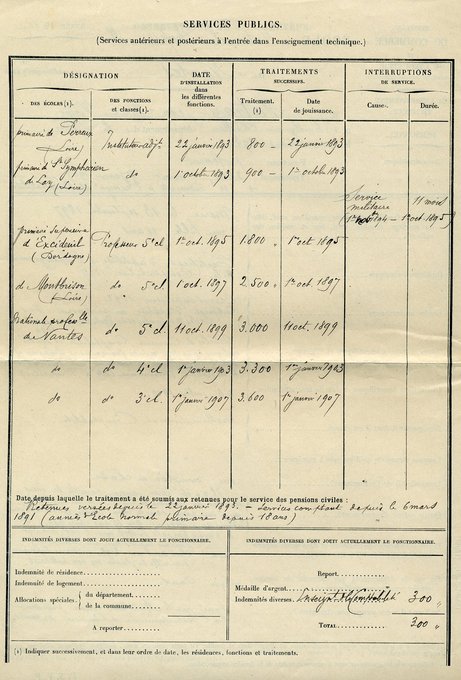 SERVICES PUBLICS.
(Services antérieurs et postérieurs à l'entrée dans l'enseignement technique.)
DÉSIGNATION
DATE
D'INSTALLATION
dans
les différentes
fonctions.
TRAITEMENTS
SUCCESSIFS.
INTERRUPTIONS
DE SERVICE.
DES ÉCOLES (1).
DES FONCTIONS
et classes (1).
Traitement. (1)
Date
de jouissance.
Cause.
Durée.
primaire de Perreux
(Loire)
Instituteur adjt
22 janvier 1893
800 -
22 janvier 1893
primaire de St Symphorien
de Lay (Loire)
do
1er octobre 1893
900 -
1er octobre 1893
Service
militaire
11 mois
1er 94 - 1er oct. 1895
primaire supérieure
d'Excideuil
(Dordogne)
Professeur 5e cl
1er oct. 1895
1.800
1er oct 1895
de Montbrison
(Loire)
do 5e cl
1er oct. 1897
2.500
1er oct. 1897
Nationale profelle
de Nantes
do 5e cl
11 oct. 1899
3.000
11 oct. 1899
do
do 4e cl
1er janvier 1903
3.300
1er janvier 1903
do
do 3e cl.
1er janvier 1907
3.600
1er janvier 1907
Date depuis laquelle le traitement a été soumis aux retenues pour le service des pensions civiles :
Retenues versées depuis le 22 janvier 1893. - Services comptant depuis le 6 mars
1891 (années d'Ecole normale primaire depuis 18 ans)
INDEMNITÉS DIVERSES DONT JOUIT ACTUELLEMENT LE FONCTIONNAIRE.
Indemnité de résidence
Indemnité de logement
Allocations spéciales
du département
de la commune
A reporter
INDEMNITÉS DIVERSES DONT JOUIT ACTUELLEMENT LE FONCTIONNAIRE.
Report
Médaille d'argent
Indemnités diverses. Enseignt Comptabilité 300 "
TOTAL 300 "
(1) Indiquer successivement, et dans leur ordre de date, les résidences, fonctions et traitements.